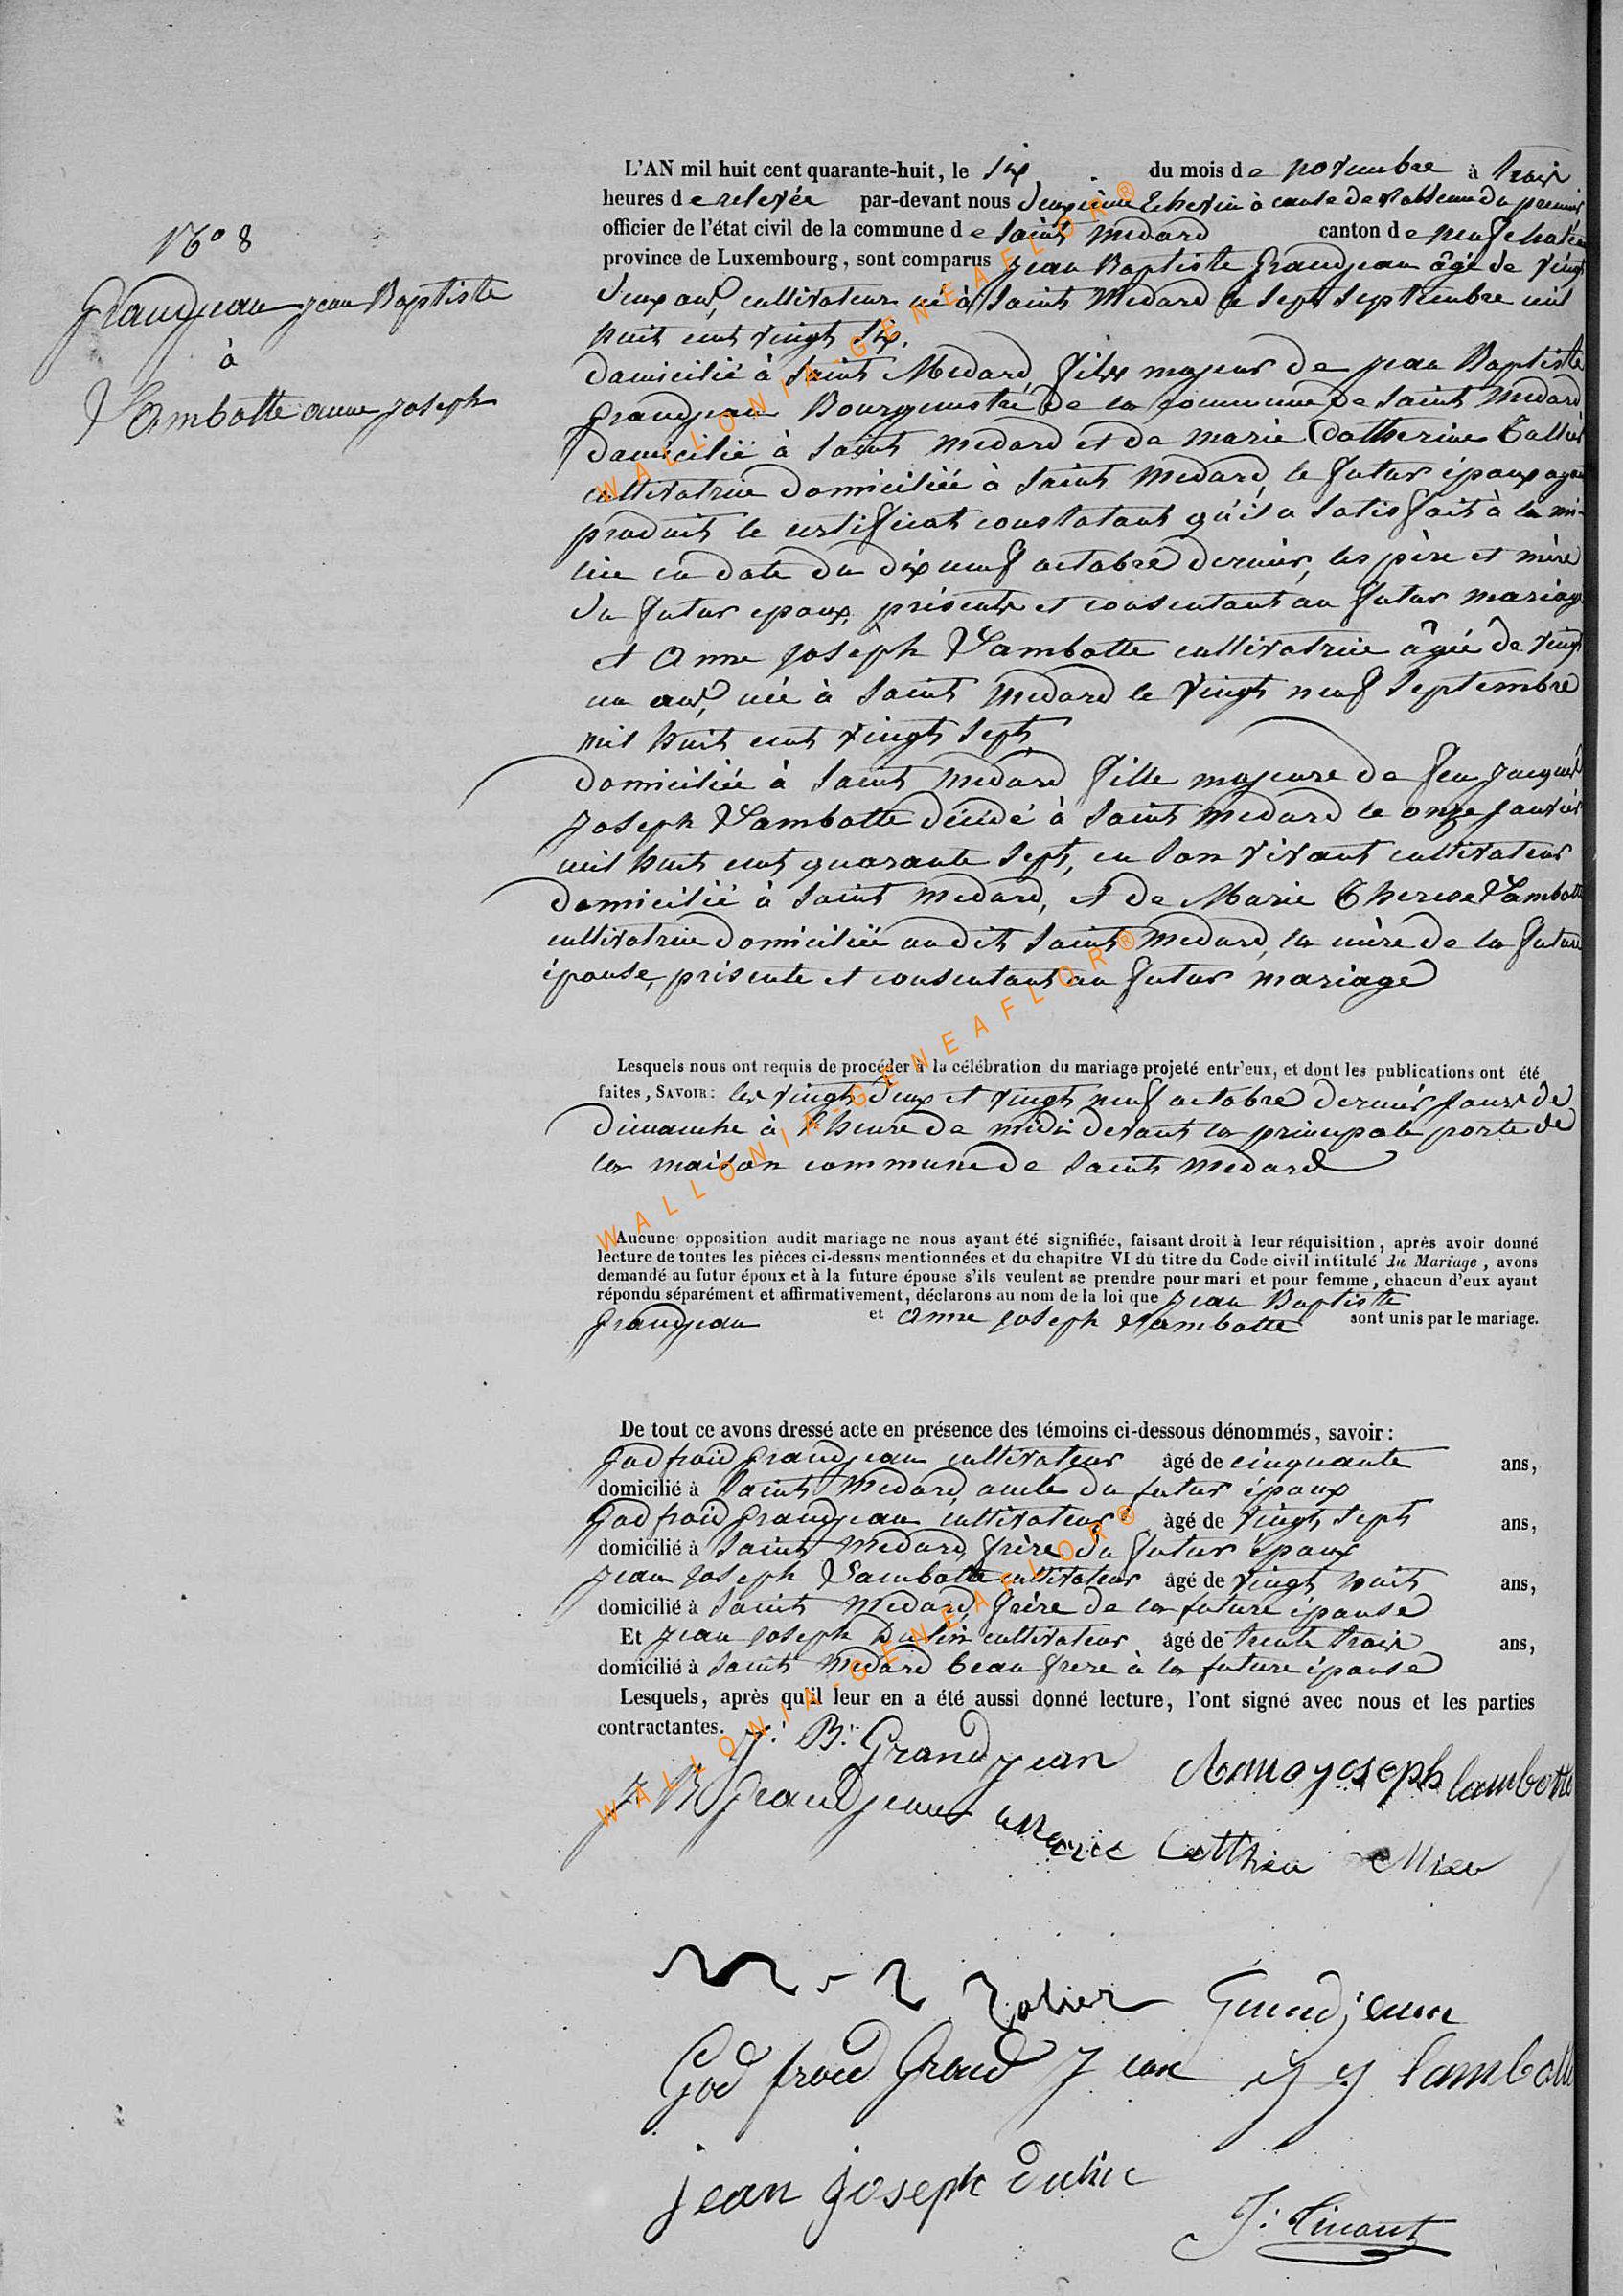 N° 8
Grandjean jean Baptiste
à
Lambotte anne joseph
L'AN mil huit cent quarante-huit, le six du mois de novembre à trois
heures de relevée par-devant nous deuxième Echevin à cause de l'absence du premier
officier de l'état civil de la commune de Saint Medard canton de neufchateau
province de Luxembourg, sont comparus jean Baptiste Grandjean âgé de vingt
deux ans, cultivateur né à Saint Medard le sept septembre mil
huit cent vingt six.
domicilié à Saint Medard, fils majeur de jean Baptiste
Grandjean Bourgmestre de la commune de Saint Medard
domicilié à Saint Medard et de marie Catherine
cultivatrice domiciliée à Saint Medard, le futur époux ayant
produit le certificat constatant qu'il a satisfait à la mi-
lice en date du dix neuf octobre dernier, les père et mère
du futur epoux, présents et consentant au futur mariage
et Anne joseph Lambotte cultivatrice âgée de vingt
un ans, née à Saint Medard le vingt neuf septembre
mil huit cent vingt sept
domiciliée à Saint Medard fille majeure de feu jacques
joseph Lambotte décédé à Saint Medard le onze janvier
mil huit cent quarante sept, en son vivant cultivateur
domicilié à Saint Medard, et de Marie Therese Lambotte
cultivatrice domiciliée audit Saint Medard, la mère de la future
épouse, présente et consentant au futur mariage
Lesquels nous ont requis de procéder à la célébration du mariage projeté entr'eux, et dont les publications ont été
faites, SAVOIR: les vingt deux et vingt neuf octobre dernier jours de
dimanche à l'heure de midi devant la principale porte de
la maison commune de Saint Medard
Aucune opposition audit mariage ne nous ayant été signifiée, faisant droit à leur réquisition, après avoir donné
lecture de toutes les pièces ci-dessus mentionnées et du chapitre VI du titre du Code civil intitulé du Mariage, avons
demandé au futur époux et à la future épouse s'ils veulent se prendre pour mari et pour femme, chacun d'eux ayant
répondu séparément et affirmativement, déclarons au nom de la loi que jean Baptiste
Grandjean et anne joseph Lambotte sont unis par le mariage.
De tout ce avons dressé acte en présence des témoins ci-dessous dénommés, savoir:
Godfroid Grandjean cultivateur âgé de cinquante ans,
domicilié à Saint Medard, oncle du futur époux
Godfroid Grandjean cultivateur âgé de vingt sept ans,
domicilié à Saint Medard frère du futur époux
jean joseph Lambotte cultivateur âgé de vingt huit ans,
domicilié à Saint Medard, frère de la future épouse
Et jean joseph cultivateur âgé de trente trois ans,
domicilié à Saint Medard beau frere à la future épouse
Lesquels, après qu'il leur en a été aussi donné lecture, l'ont signé avec nous et les parties
contractantes. J. B. Grandjean
Anne joseph lambotte
J B Grandjean
Marie
Grandjean
God froid Grand Jean J J lambotte
jean joseph
WALLONIA-GENEAFLOR®
WALLONIA-GENEAFLOR®
WALLONIA-GENEAFLOR®